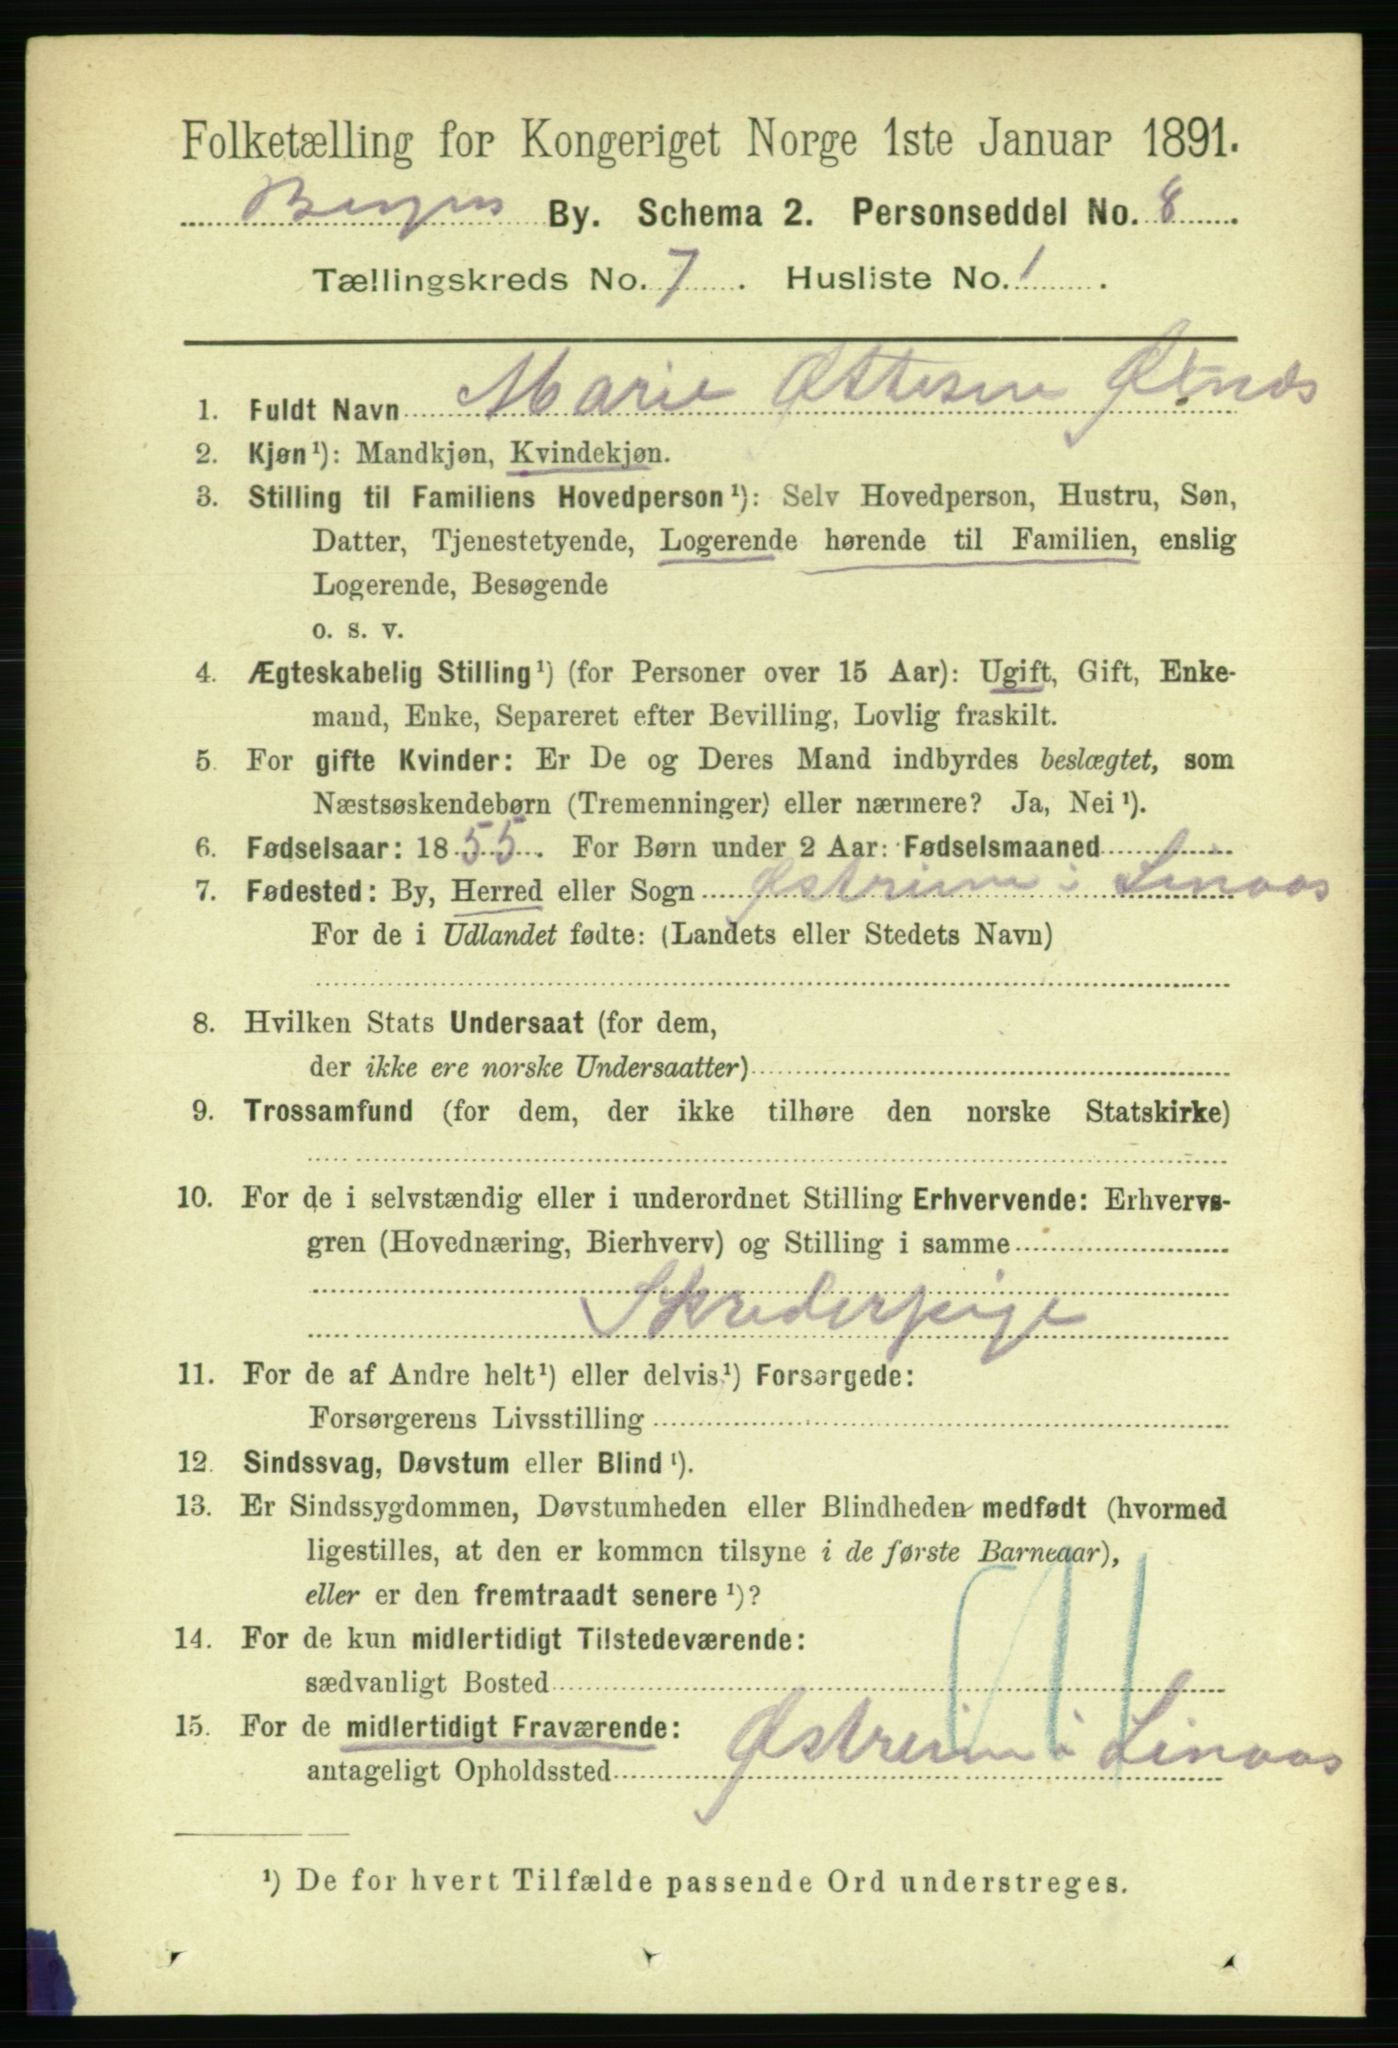 Folketælling for Kongeriget Norge 1ste Januar 1891.
Bergens By. Schema 2. Personseddel No. 8
Tællingskreds No. 7. Husliste No. 1.
1. Fuldt Navn Marie Ottesen
2. Kjøn¹): Mandkjøn, Kvindekjøn.
3. Stilling til Familiens Hovedperson¹): Selv Hovedperson, Hustru, Søn,
Datter, Tjenestetyende, Logerende hørende til Familien, enslig
Logerende, Besøgende
o. s. v.
4. Ægteskabelig Stilling¹) (for Personer over 15 Aar): Ugift, Gift, Enke-
mand, Enke, Separeret efter Bevilling, Lovlig fraskilt.
5. For gifte Kvinder: Er De og Deres Mand indbyrdes beslægtet, som
Næstsøskendebørn (Tremenninger) eller nærmere? Ja, Nei¹).
6. Fødselsaar: 1855. For Børn under 2 Aar: Fødselsmaaned
7. Fødested: By, Herred eller Sogn Østreim i Linaas
For de i Udlandet fødte: (Landets eller Stedets Navn)
8. Hvilken Stats Undersaat (for dem,
der ikke ere norske Undersaatter)
9. Trossamfund (for dem, der ikke tilhøre den norske Statskirke)
10. For de i selvstændig eller i underordnet Stilling Erhvervende: Erhvervs-
gren (Hovednæring, Bierhverv) og Stilling i samme
Skræderpige
11. For de af Andre helt¹) eller delvis¹) Forsørgede:
Forsørgerens Livsstilling
12. Sindssvag, Døvstum eller Blind¹).
13. Er Sindssygdommen, Døvstumheden eller Blindheden medfødt (hvormed
ligestilles, at den er kommen tilsyne i de første Barneaar),
eller er den fremtraadt senere¹)?
14. For de kun midlertidigt Tilstedeværende:
sædvanligt Bosted
15. For de midlertidigt Fraværende:
antageligt Opholdssted Østreim i Linaas
¹) De for hvert Tilfælde passende Ord understreges.